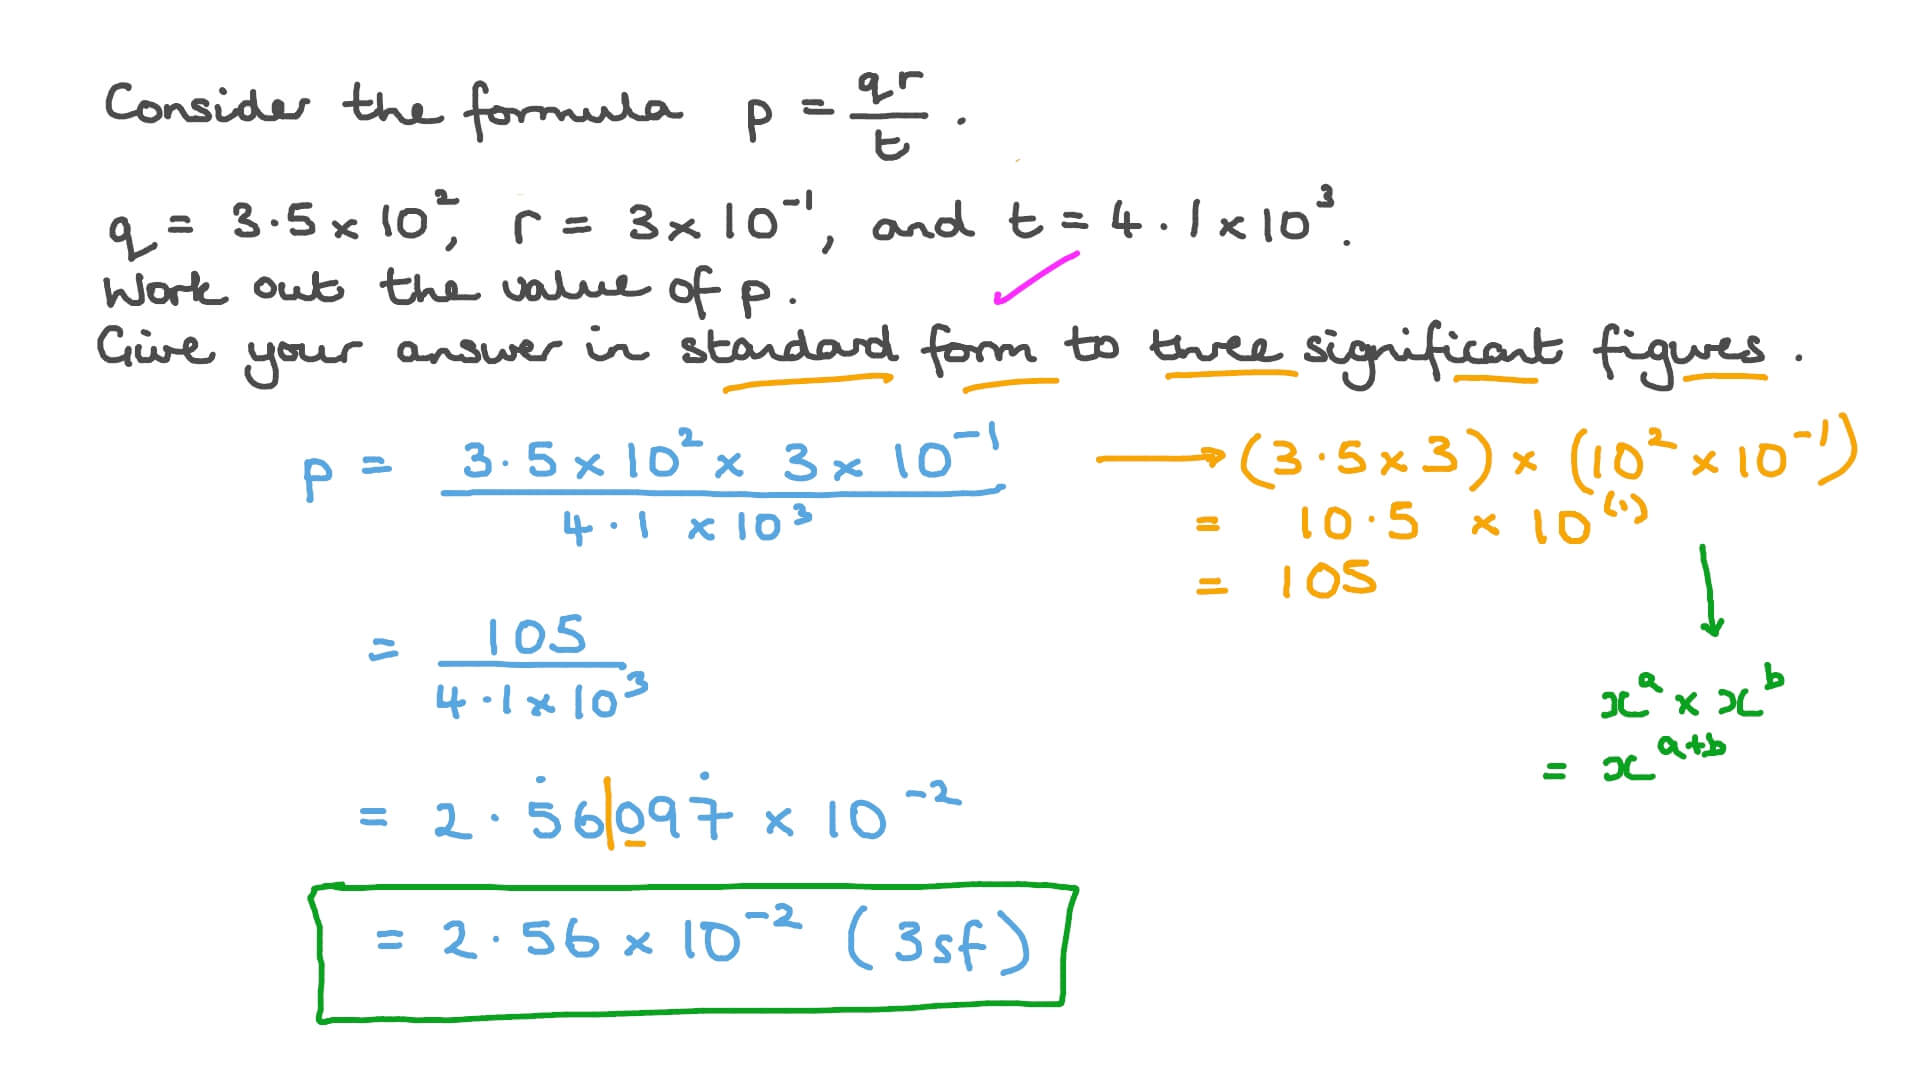 Consider the formula p = qr/t .
q = 3.5 × 10², r = 3 × 10⁻¹, and t = 4.1 × 10³.
Work out the value of p.
Give your answer in standard form to three significant figures.
p = (3.5 × 10² × 3 × 10⁻¹)/(4.1 × 10³) ⟶ (3.5 × 3) × (10² × 10⁻¹)
= 10.5 × 10⁽¹⁾
= 105
= 105/(4.1 × 10³)
xᵃ × xᵇ
= xᵃ⁺ᵇ
= 2.5̇6|097̇ × 10⁻²
= 2.56 × 10⁻² (3sf)